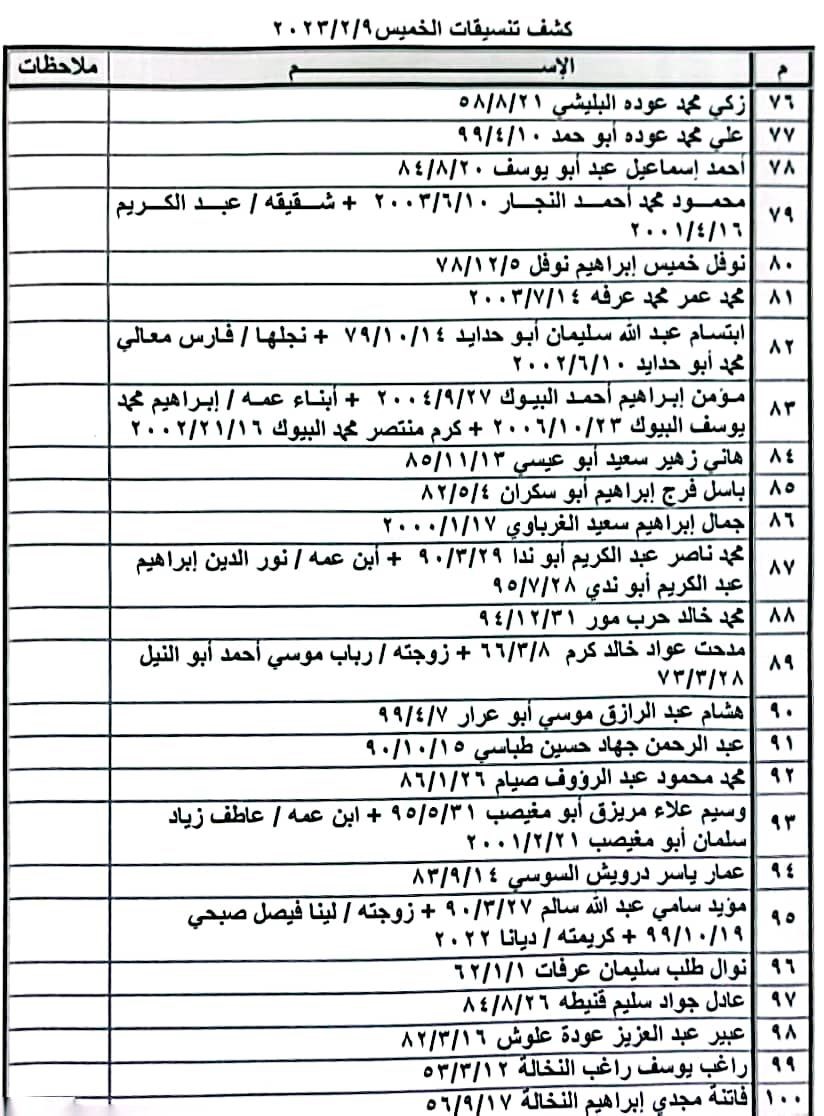 كشف تنسيقات الخميس ٢٠٢٣/٢/٩
م الإســـــم ملاحظات
٧٦ زكي محمد عوده البليشي ٥٨/٨/٢١
٧٧ علي محمد عوده أبو حمد ٩٩/٤/١٠
٧٨ أحمد إسماعيل عبد أبو يوسف ٨٤/٨/٢٠
٧٩ محمود محمد أحمد النجار ٢٠٠٣/٦/١٠ + شقيقه / عبد الكريم
٢٠٠١/٤/١٦
٨٠ نوفل خميس إبراهيم نوفل ٧٨/١٢/٥
٨١ محمد عمر محمد عرفه ٢٠٠٣/٧/١٤
٨٢ ابتسام عبد الله سليمان أبو حدايد ٧٩/١٠/١٤ + نجلها / فارس معالي
محمد أبو حدايد ٢٠٠٢/٦/١٠
٨٣ مؤمن إبراهيم أحمد البيوك ٢٠٠٤/٩/٢٧ + أبناء عمه / إبراهيم محمد
يوسف البيوك ٢٠٠٦/١٠/٢٣ + كرم منتصر محمد البيوك ٢٠٠٢/٢١/١٦
٨٤ هاني زهير سعيد أبو عيسي ٨٥/١١/١٣
٨٥ باسل فرج إبراهيم أبو سكران ٨٢/٥/٤
٨٦ جمال إبراهيم سعيد الغرباوي ٢٠٠٠/١/١٧
٨٧ محمد ناصر عبد الكريم أبو ندا ٩٠/٣/٢٩ + أبن عمه / نور الدين إبراهيم
عبد الكريم أبو ندي ٩٥/٧/٢٨
٨٨ محمد خالد حرب مور ٩٤/١٢/٣١
٨٩ مدحت عواد خالد كرم ٦٦/٣/٨ + زوجته / رباب موسي أحمد أبو النيل
٧٣/٣/٢٨
٩٠ هشام عبد الرازق موسي أبو عرار ٩٩/٤/٧
٩١ عبد الرحمن جهاد حسين طباسي ٩٠/١٠/١٥
٩٢ محمد محمود عبد الرؤوف صيام ٨٦/١/٢٦
٩٣ وسيم علاء مريزق أبو مغيصب ٩٥/٥/٣١ + ابن عمه / عاطف زياد
سلمان أبو مغيصب ٢٠٠١/٢/٢١
٩٤ عمار ياسر درويش السوسي ٨٣/٩/١٤
٩٥ مؤيد سامي عبد الله سالم ٩٠/٣/٢٧ + زوجته / لينا فيصل صبحي
٩٩/١٠/١٩ + كريمته / ديانا ٢٠٢٢
٩٦ نوال طلب سليمان عرفات ٦٢/١/١
٩٧ عادل جواد سليم قنيطه ٨٤/٨/٢٦
٩٨ عبير عبد العزيز عودة علوش ٨٢/٣/١٦
٩٩ راغب يوسف راغب النخالة ٥٣/٣/١٢
١٠٠ فاتنة مجدي إبراهيم النخالة ٥٦/٩/١٧